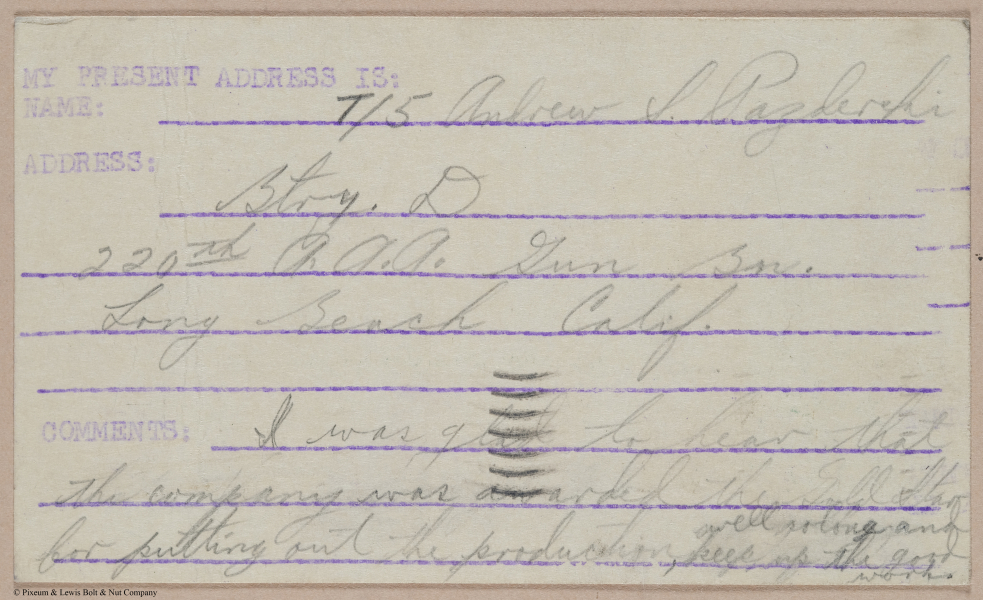 MY PRESENT ADDRESS IS:
NAME: T/5 Andrew S. Pazderski
ADDRESS:
Btry. D
220th A.A.A. Gun Bn.
Long Beach Calif.
COMMENTS: I was glad to hear that
the company was awarded the Gold Star
for putting out the production, keep up the good
work.
well so long and
© Pixeum & Lewis Bolt & Nut Company